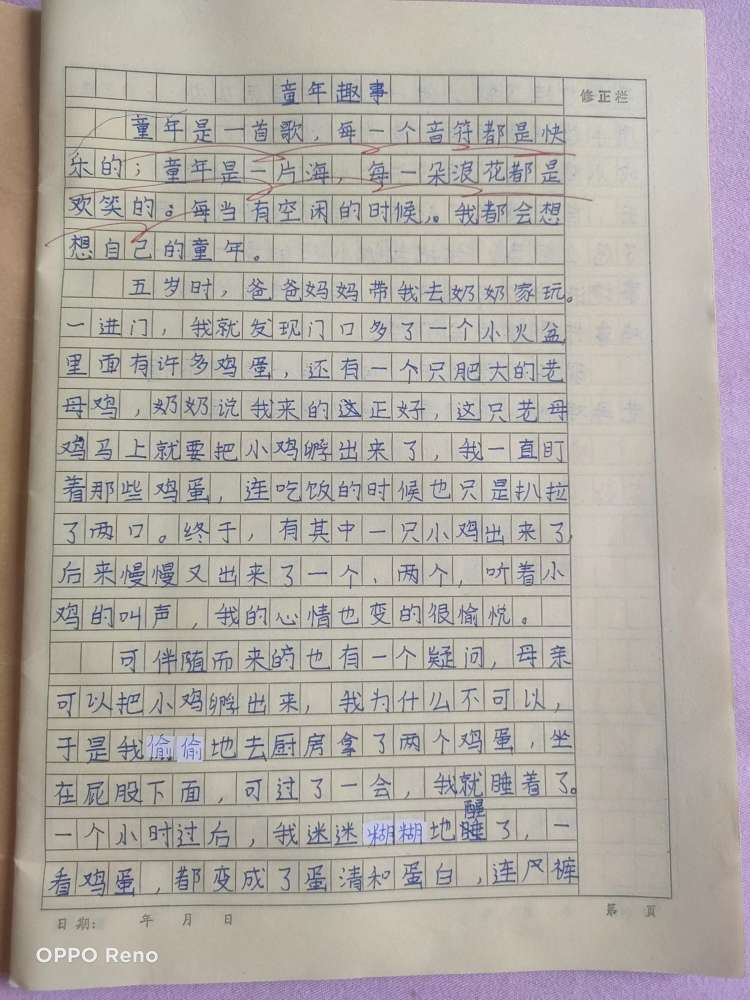 童年趣事
修正栏
童年是一首歌，每一个音符都是快
乐的；童年是一片海，每一朵浪花都是
欢笑的。每当有空闲的时候，我都会想
想自己的童年。
五岁时，爸爸妈妈带我去奶奶家玩。
一进门，我就发现门口多了一个小火盆
里面有许多鸡蛋，还有一个只肥大的老
母鸡，奶奶说我来的这正好，这只老母
鸡马上就要把小鸡孵出来了，我一直盯
着那些鸡蛋，连吃饭的时候也只是扒拉
了两口。终于，有其中一只小鸡出来了，
后来慢慢又出来了一个、两个，听着小
鸡的叫声，我的心情也变的很愉悦。
可伴随而来的也有一个疑问，母亲
可以把小鸡孵出来，我为什么不可以，
于是我偷偷地去厨房拿了两个鸡蛋，坐
在屁股下面，可过了一会，我就睡着了。
醒
一个小时过后，我迷迷糊糊地睡了，一
看鸡蛋，都变成了蛋清和蛋白，连尺裤
日期： 年 月 日
第 页
OPPO Reno